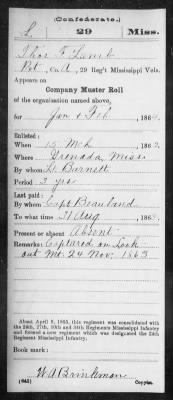 (Confederate.)
L 29 Miss.
Thos F Lamb
Pvt, Co. , 29 Reg't Mississippi Vols.
Appears on
Company Muster Roll
of the organization named above,
for Jan & Feb , 186
Enlisted:
When 15 Mch , 186
Where Grenada, Miss
By whom Lt Barnett
Period 3 yrs
Last paid:
By whom Capt
To what time 31 Aug , 186
Present or absent Absent
Remarks: Captured on Look
out Mt. 24 Nov. 1863
About April 9, 1865, this regiment was consolidated with
the 24th, 27th, 30th and 34th Regiments Mississippi Infantry
and formed a new regiment which was designated the 24th
Regiment Mississippi Infantry.
Book mark:
W A Brinkman
(642) Copyist.